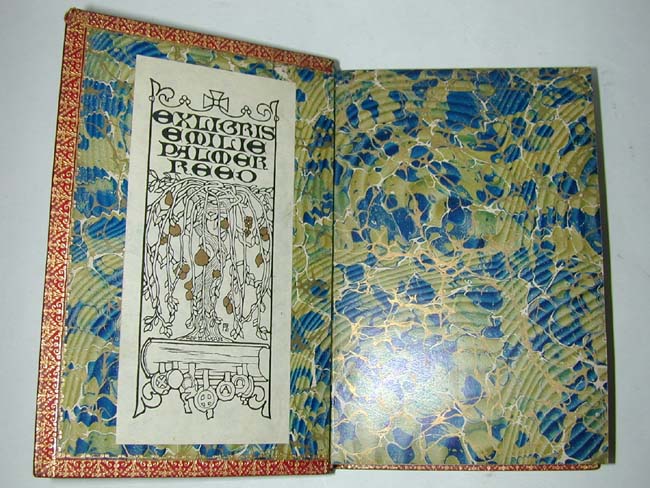 EXLIBRIS
EMILIE
PALMER
REED